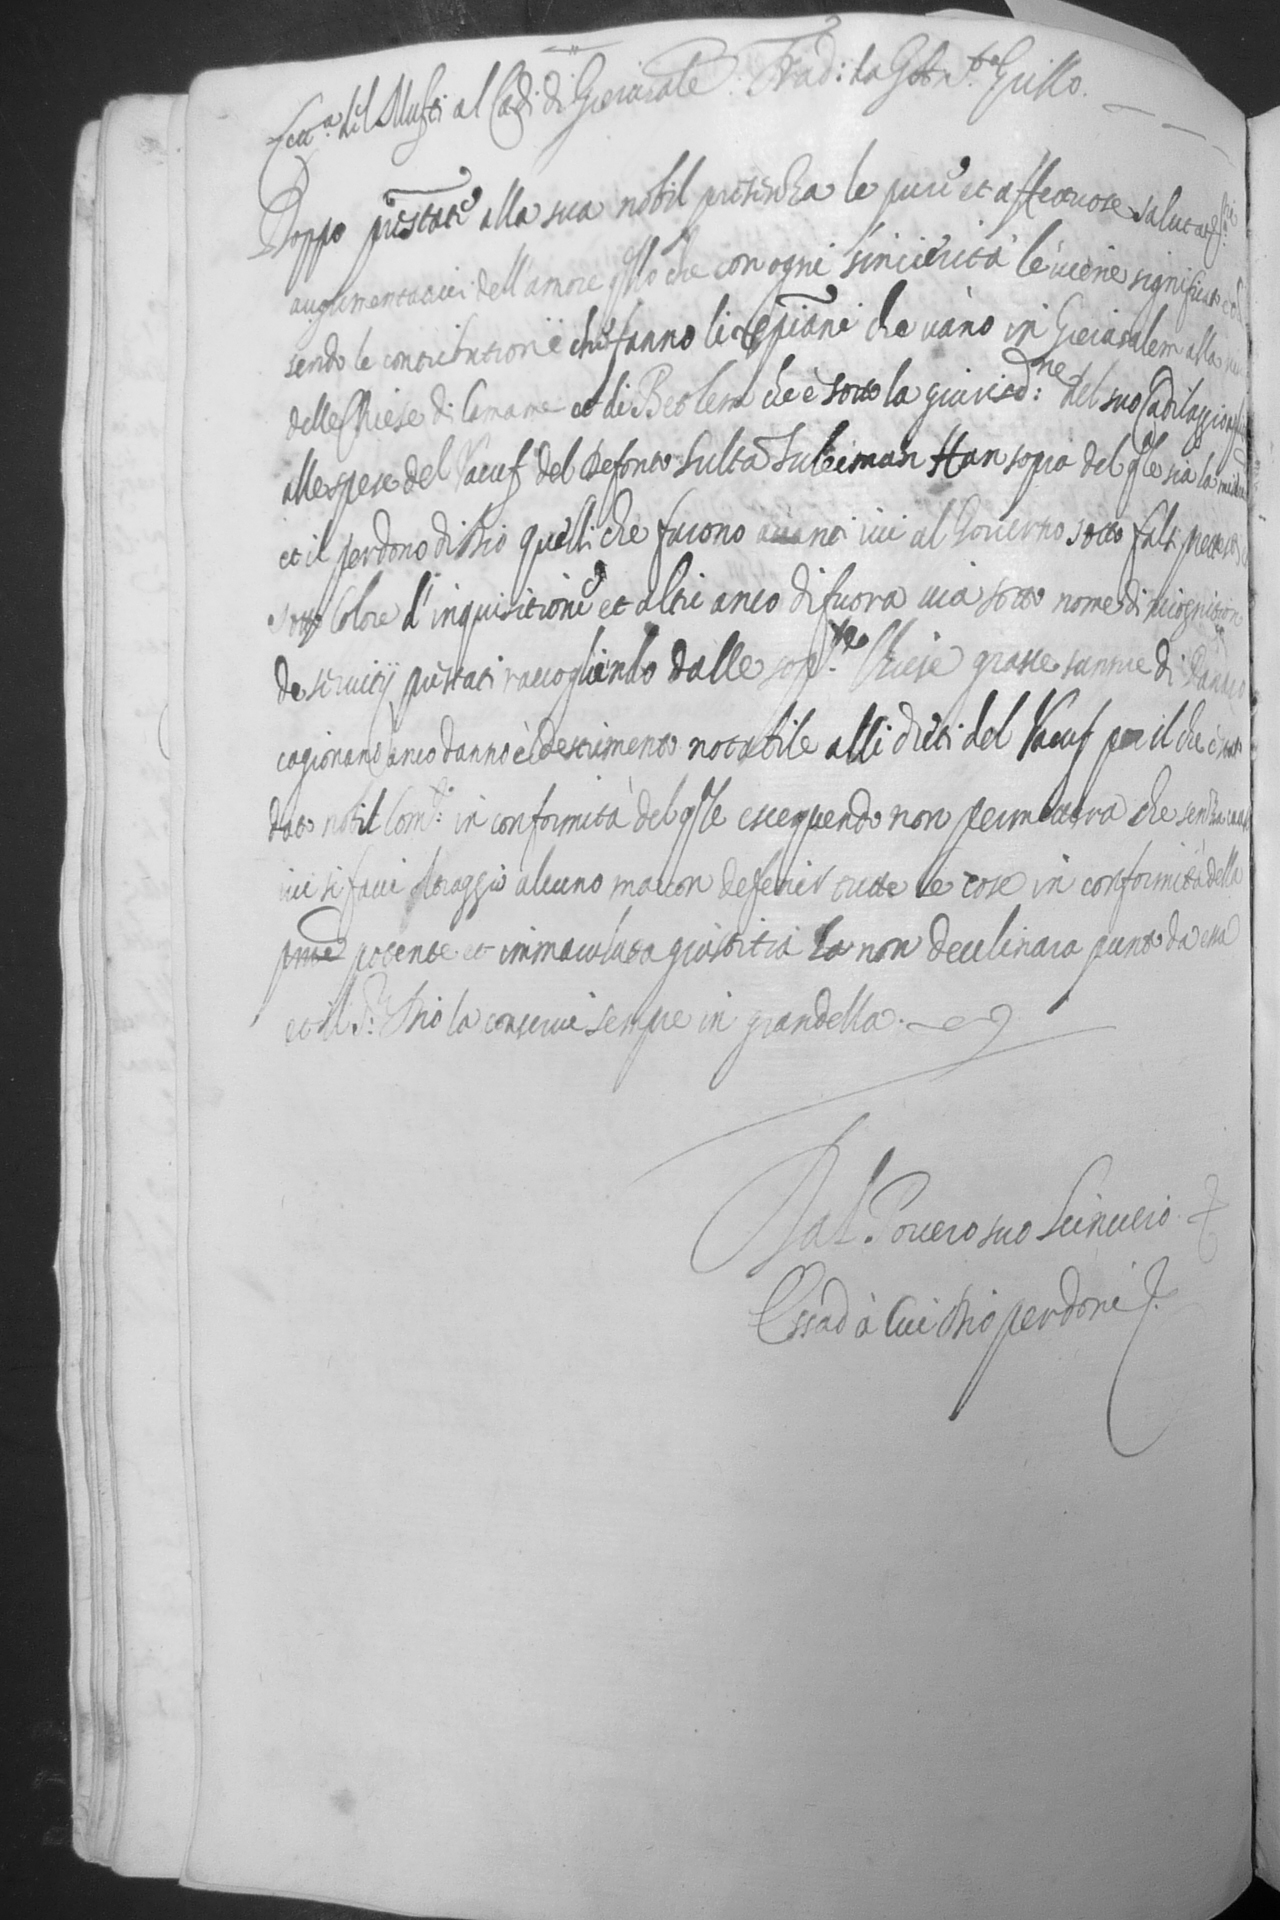 Lett.ra del Mufti al Cadi di Gierusale Trad: da G Bta Grillo.
Doppo prestate alla sua nobil presenza le pure et affettuose salutat
augumentatrici dell'amore qllo che con ogni sincerità le viene significato
sendo le contributioni che fanno li xpiani che vano in Gierusalem alla
delle Chiese di Camame et di Betlem che è sotto la giurisd:ne del suo Cadilaggio
alle spese del Vacuf del defonto Sultã Suleiman Han sopra del qle sia la
et il perdono di Dio quelli che furono avanti ivi al Governo sotto falsi pretesti
sotto Colore d'inquisitione et altri anco di fuora via sotto nome di ricognition
de servitij prestati raccogliendo dalle sop.te Chiese grosse summe di danaro
cagionano anco danno è detrimento notabile alli dritti del Vacuf per il che è stato
dato nobil Com.to in conformità del qle esequendo non permetterà che senza causa
ivi si facci oltraggio alcuno ma con defenir tutte le cose in conformità della
potente et immaculata giustitia la non declinara punto da essa
et il S.r Dio la conservi sempre in grandezza.
Dal Povero suo Sincero
Essad à Cui Dio perdoni